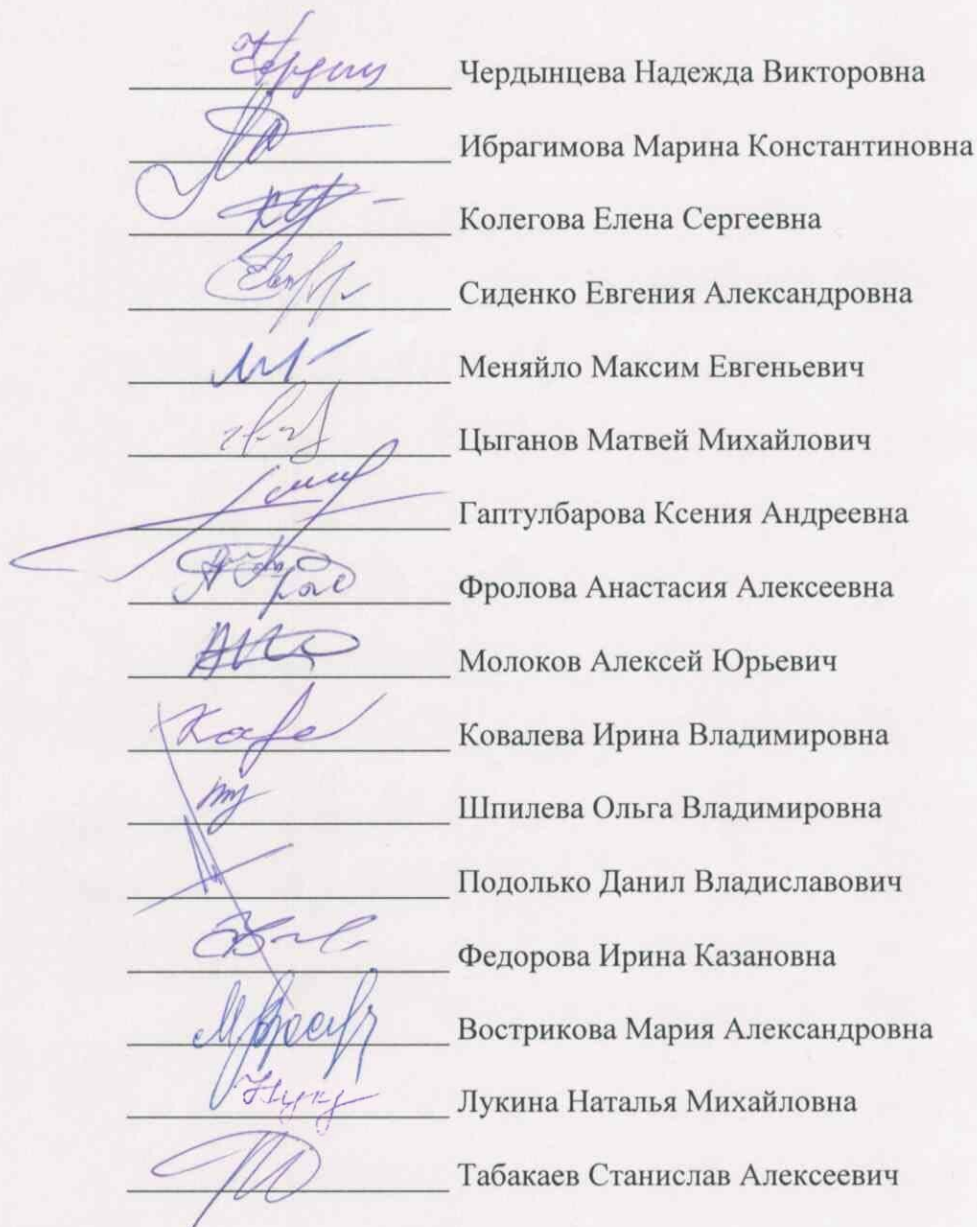 Чердынцева Надежда Викторовна
Ибрагимова Марина Константиновна
Колегова Елена Сергеевна
Сиденко Евгения Александровна
Меняйло Максим Евгеньевич
Цыганов Матвей Михайлович
Гаптулбарова Ксения Андреевна
Фролова Анастасия Алексеевна
Молоков Алексей Юрьевич
Ковалева Ирина Владимировна
Шпилева Ольга Владимировна
Подолько Данил Владиславович
Федорова Ирина Казановна
Вострикова Мария Александровна
Лукина Наталья Михайловна
Табакаев Станислав Алексеевич